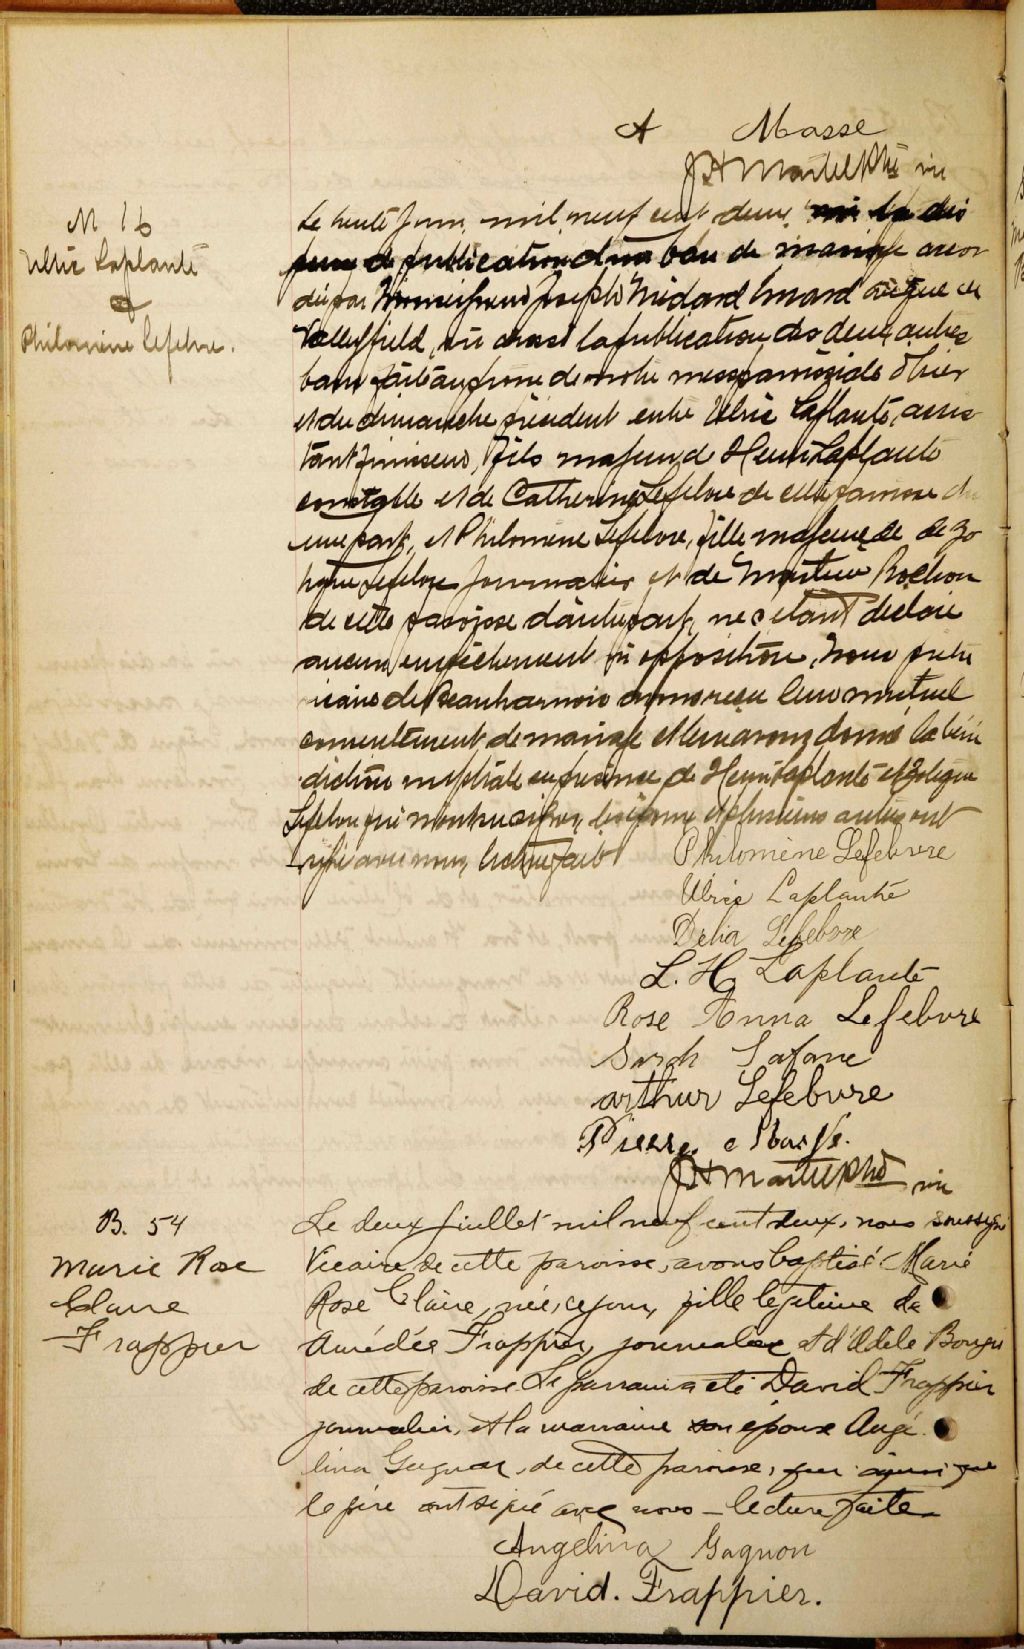 A Masse
J H Martel Ptre vic
M 16
Ulric Laplante
&
Philomène Lefebvre.
Le trente Juin, mil neuf cent deux, vu la dis
pense de publication d'un ban de mariage accor
dée par Monseigneur Joseph Médard Emard évêque de
Valleyfield, vu aussi la publication des deux autres
bans faite au prône de notre messe paroissiale d'hier
et du dimanche précédent entre Ulric Laplante, assis
tant finisseur, fils majeur de Henri Laplante
constable et de Catherine Lefebvre de cette paroisse d'
une part, et Philomène Lefebvre, fille majeure de de Zo
tique Lefebvre journalier et de Rochon
de cette paroisse d'autre part, ne s'étant déclaré
aucun empêchement ni opposition, Nous prêtre
vicaire de Beauharnois avons reçu leur mutuel
consentement de mariage et leur avons donné la béné
diction nuptiale en présence de Henri Laplante et Zotique
Lefebvre qui n'ont su signer, les époux et plusieurs autres ont
signé avec nous, lecture faite
Philomène Lefebvre
Ulric Laplante
Délia Lefebvre
L. H. Laplante
Rose Anna Lefebvre
Sarah
Arthur Lefebvre
Pierre
J H Martel Ptre vic
B. 54
Marie Rose
Claire
Frappier
Le deux juillet mil neuf cent deux, nous soussigné
Vicaire de cette paroisse, avons baptisé Marie
Rose Claire, née, ce jour, fille légitime de
Amédée Frappier, journalier et d'Adèle Bougie
de cette paroisse. Le parrain a été David Frappier
journalier, et la marraine son épouse Angé
lina Gagnon, de cette paroisse, qui ainsi que
le père ont signé avec nous – lecture faite
Angelina Gagnon
David. Frappier.